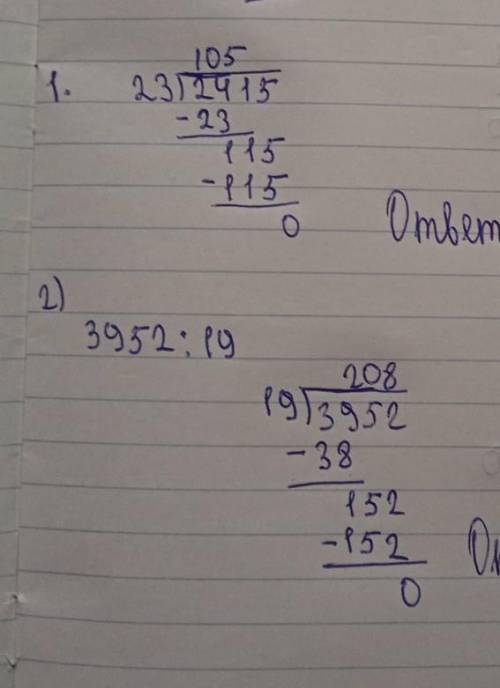 105
1. 23)2415
-23
115
-115
0
Ответ
2)
3952:19
208
19)3952
-38
152
-152
0